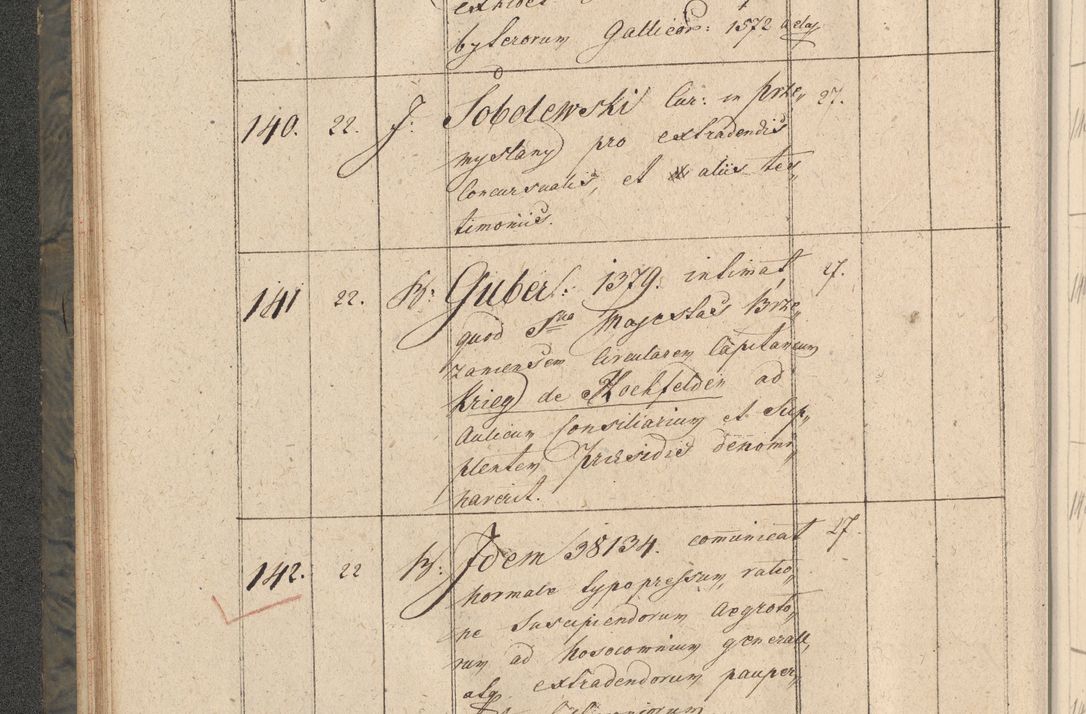 byterorum Gallicor: 1572 a elap
140. 22. J: Sobolewski Cur: in Prze„ 27.
myslany pro extradendis
Concursualis, et aliis tes„
timoniis.
141 22. W: Guber: 1379. intimat 27.
quod Sua Majestas Brze„
zanensem Circularem Capitaneum
Krieg de Hochfelden ad
Aulicum Consiliarium et Sup„
plentem Praesidis denomi„
naverit.
142. 22 W: Idem 38134. comunicat 27.
normale typo pressum, ratio„
ne suscipiendorum aegroto„
rum ad hosocomnium generale,
atq. extradendorum pauper„